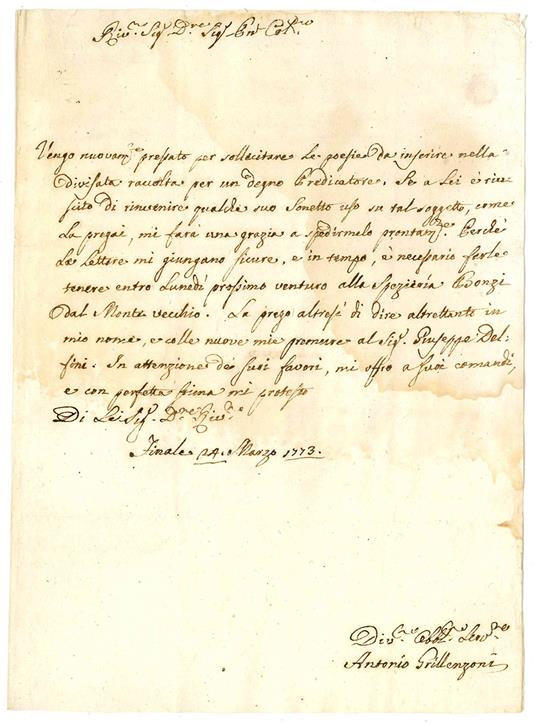 Riv.mo Sig.r D.re Sig.r Pn͞e Col.mo
Vengo nuovam.te pressato per sollecitare le poesie da inserire nella
divisata racolta per un degno Predicatore. Se a Lei è riu-
scito di rinvenire qualche suo Sonetto uso su tal soggetto, come
La pregai, mi farà una grazia a spedirmelo prontam.te. Perchè
Le Lettere mi giungano sicure, e in tempo, è necessario farle
tenere entro Lunedì prossimo venturo alla Spezieria Ponzi
dal Monte vecchio. La prego altresì di dire altrettanto in
mio nome, e colle nuove mie premure al Sig.r Giuseppe Del-
fini. In attenzione de' suoi favori, mi offro a' suoi comandi,
e con perfetta stima mi protesto
Di Lei Sig.r D.re Riv.mo
Finale 24. Marzo 1773.
Div.mo Obbl.mo Serv.re
Antonio Grillenzoni